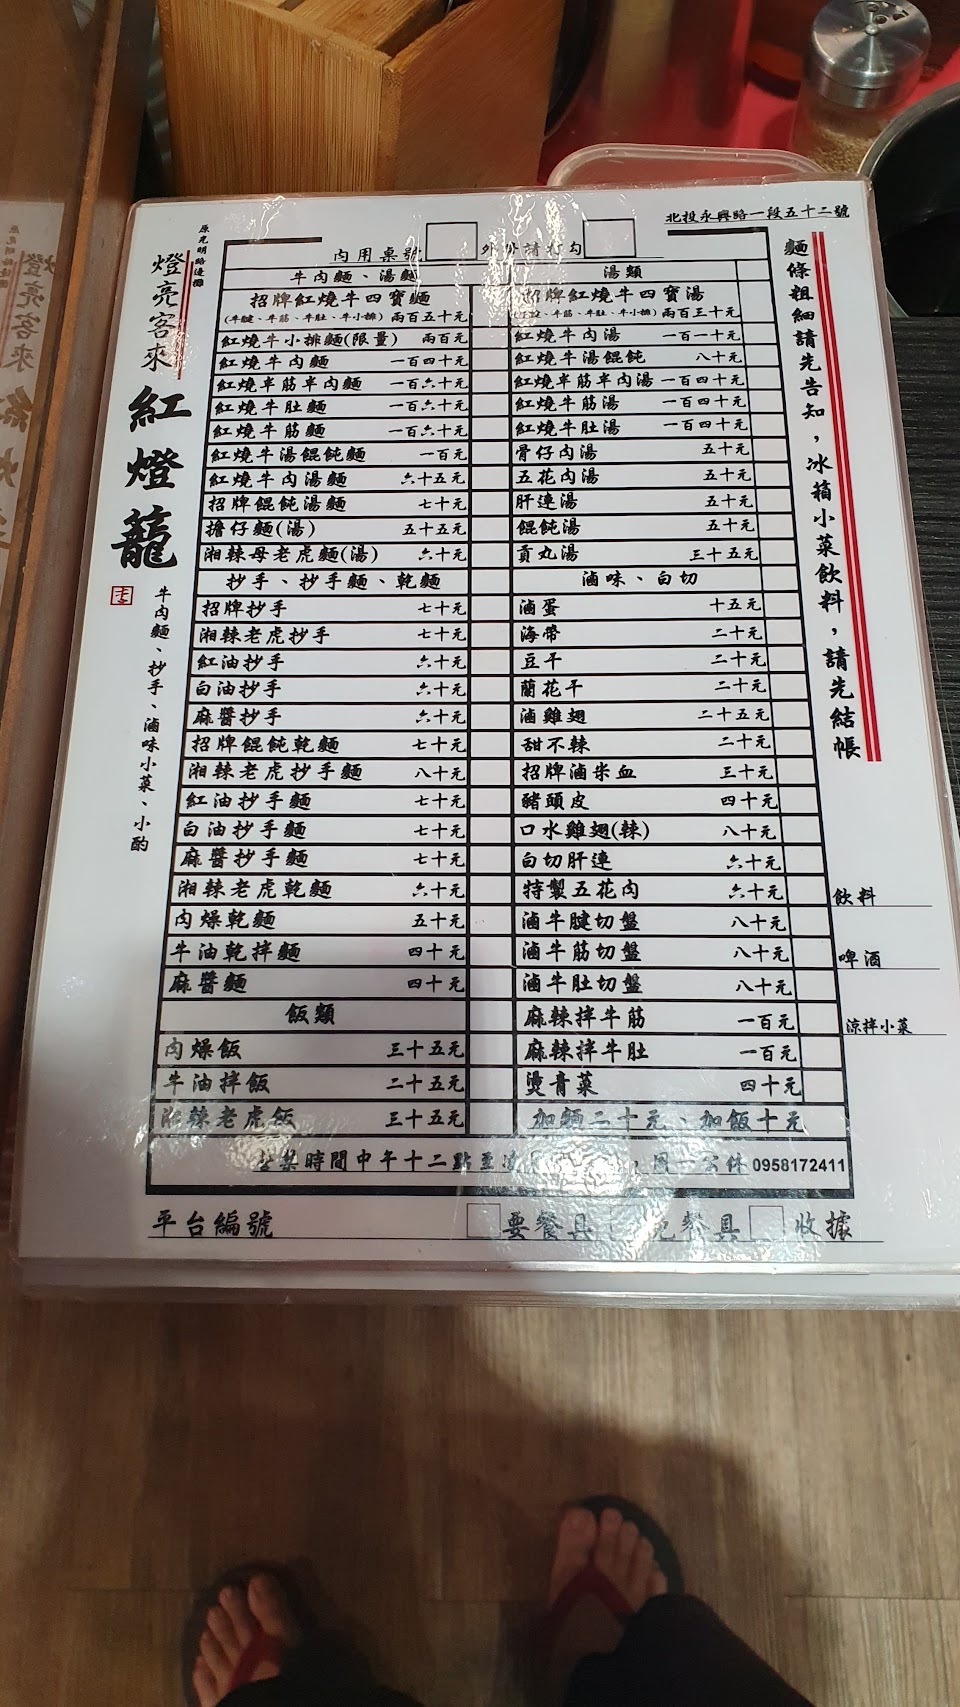 北投永興路一段五十二號
原光明路邊攤
燈亮客來
紅燈籠
牛肉麵、抄手、滷味小菜、小酌
內用桌號
外帶請打勾
牛肉麵、湯麵
招牌紅燒牛四寶麵
(牛腱、牛筋、牛肚、牛小排) 兩百五十元
紅燒牛小排麵(限量) 兩百元
紅燒牛肉麵 一百四十元
紅燒半筋半肉麵 一百六十元
紅燒牛肚麵 一百六十元
紅燒牛筋麵 一百六十元
紅燒牛湯餛飩麵 一百元
紅燒牛肉湯麵 六十五元
招牌餛飩湯麵 七十元
擔仔麵(湯) 五十五元
湘辣母老虎麵(湯) 六十元
抄手、抄手麵、乾麵
招牌抄手 七十元
湘辣老虎抄手 七十元
紅油抄手 六十元
白油抄手 六十元
麻醬抄手 六十元
招牌餛飩乾麵 七十元
湘辣老虎抄手麵 八十元
紅油抄手麵 七十元
白油抄手麵 七十元
麻醬抄手麵 七十元
湘辣老虎乾麵 六十元
肉燥乾麵 五十元
牛油乾拌麵 四十元
麻醬麵 四十元
飯類
肉燥飯 三十五元
牛油拌飯 二十五元
湘辣老虎飯 三十五元
湯類
招牌紅燒牛四寶湯
(牛腱、牛筋、牛肚、牛小排) 兩百三十元
紅燒牛肉湯 一百一十元
紅燒牛湯餛飩 八十元
紅燒半筋半肉湯 一百四十元
紅燒牛筋湯 一百四十元
紅燒牛肚湯 一百四十元
骨仔肉湯 五十元
五花肉湯 五十元
肝連湯 五十元
餛飩湯 五十元
貢丸湯 三十五元
滷味、白切
滷蛋 十五元
海帶 二十元
豆干 二十元
蘭花干 二十元
滷雞翅 二十五元
甜不辣 二十元
招牌滷米血 三十元
豬頭皮 四十元
口水雞翅(辣) 八十元
白切肝連 六十元
特製五花肉 六十元
滷牛腱切盤 八十元
滷牛筋切盤 八十元
滷牛肚切盤 八十元
麻辣拌牛筋 一百元
麻辣拌牛肚 一百元
燙青菜 四十元
加麵二十元、加飯十元
營業時間中午十二點至凌 ，周一公休 0958172411
麵條粗細請先告知，冰箱小菜飲料，請先結帳
飲料
啤酒
涼拌小菜
平台編號
要餐具
免餐具
收據